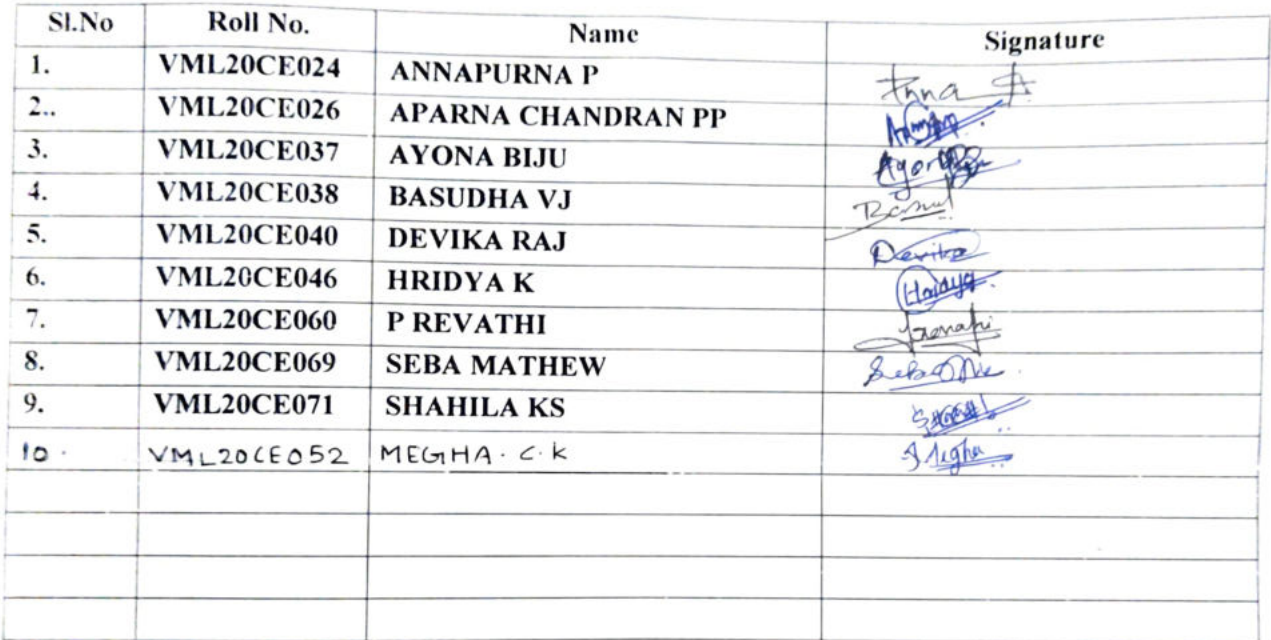 Sl.No Roll No. Name Signature
1. VML20CE024 ANNAPURNA P Anna
2.. VML20CE026 APARNA CHANDRAN PP
3. VML20CE037 AYONA BIJU
4. VML20CE038 BASUDHA VJ
5. VML20CE040 DEVIKA RAJ Devika
6. VML20CE046 HRIDYA K Hridya
7. VML20CE060 P REVATHI
8. VML20CE069 SEBA MATHEW Seba
9. VML20CE071 SHAHILA KS
10. VML20CE052 MEGHA. C.K Megha